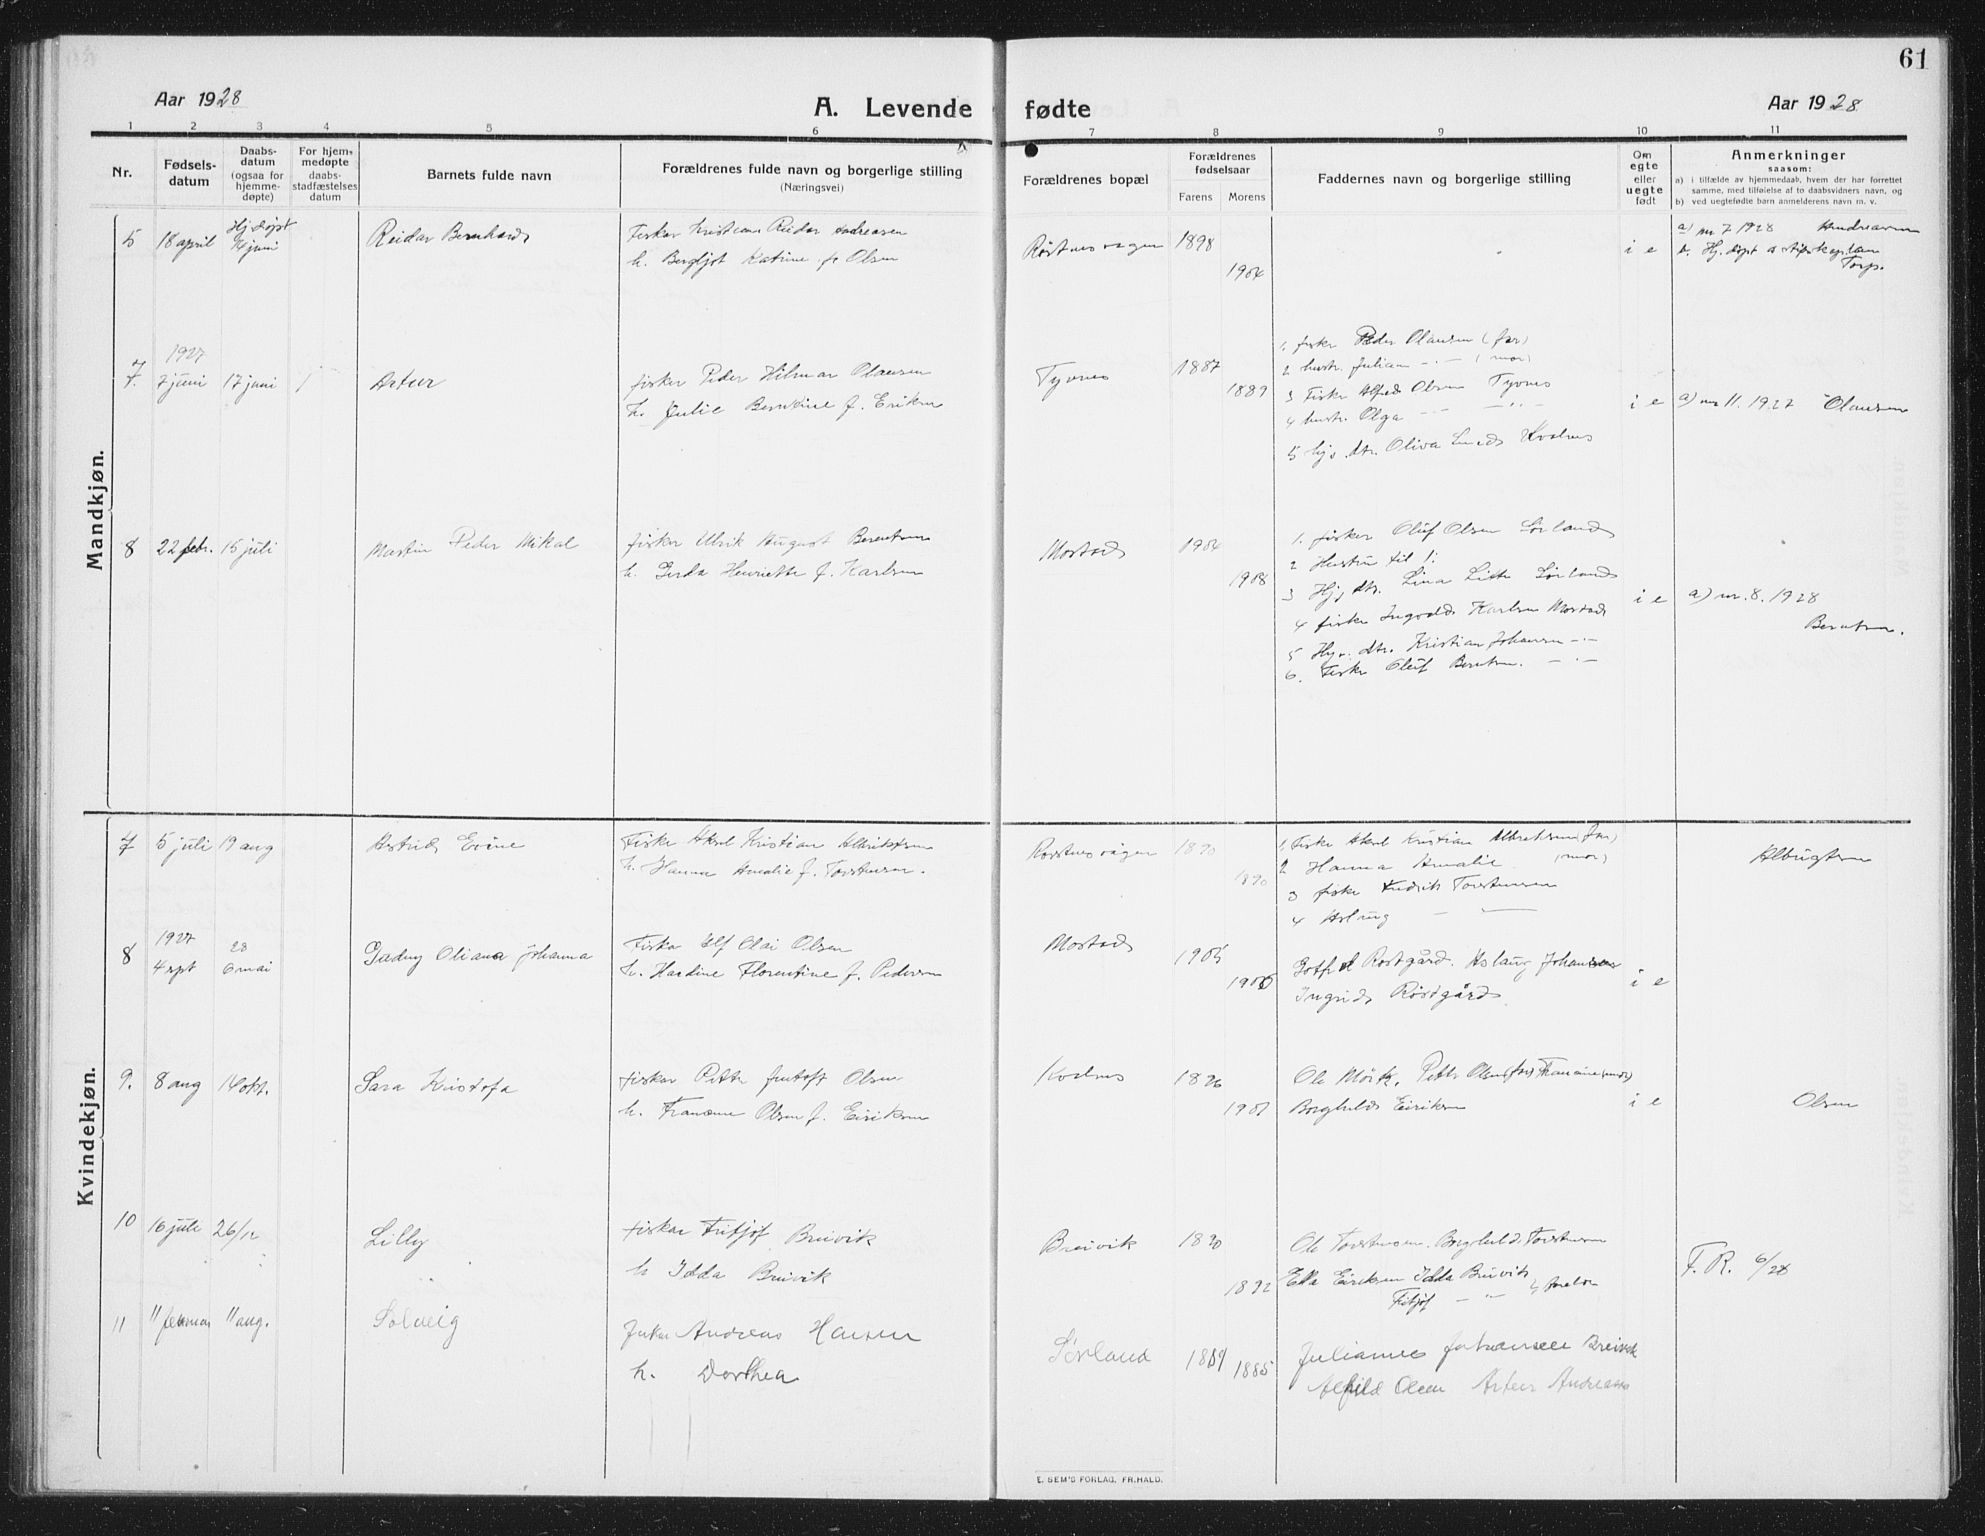 61
Aar 1928
A. Levende fødte
Aar 1928
1 2 3 4 5 6 7 8 9 10 11
Nr.
Fødsels-
datum
Daabs-
datum
(ogsaa for
hjemme-
døpte)
For hjem-
medøpte
daabs-
stadfæstelses
datum
Barnets fulde navn
Forældrenes fulde navn og borgerlige stilling
(Næringsvei)
Forældrenes bopæl
Forældrenes
fødselsaar
Farens Morens
Faddernes navn og borgerlige stilling
Om
egte
eller
uegte
født
Anmerkninger
saasom:
a) i tilfælde av hjemmedaab, hvem der har forrettet
samme, med tilføielse af to daabsvidners navn, og
b) ved uegtefødte barn anmelderens navn m. v.
Mandkjøn.
5 18 april Hj.døpt juni
Reidar Bernhard
fisker Kristian Reidar Andreasen
h. Bergljot Katrine f. Olsen
Røstnesvågen 1898
1904
i e
a) nr 7 1928 Andreasen
b. Hj. døpt a stiftskaplan
Torp.
1927
7. 7 juni 17 juni
Artur
fisker Peder Hilmar Olausen
h. Julie Berntine f. Eriksen
Tyvnes 1887
1889
1. fisker Peder Olausen (far)
2 hustr. Julian — (mor)
3 Fisker Alfred Olsen Tyvnes
4 hustr. Olga — —
5 hj. dtr. Oliva
i e
a) nr 11. 1927 Olausen
8 22 febr. 15 juli
Martin Peder Mikal
fisker Ulrik August Berentsen
h. Gerda Henriette f. Karlsen
Mostad 1904
1908
1. fisker Oluf Olsen Sørland
2 Hustru til 1:
3 Hj. dtr. Lina Sørland
4 fisker Ingvald Karlsen Mostad
5 Hj. dtr. Kristian Johansen —
6. Fisker Oluf Berntsen. —
i e
a) nr. 8. 1928
Berntsen.
Kvindekjøn.
7 5 juli 19 aug
Astrid Evine
Fisker Aksel Kristian Albriktsen
h. Hanna Amalie f. Torstensen.
Røstnesvågen 1890
1890
1. Fisker Aksel Kristian Albriktsen (far)
2 Hanna Amalie (mor)
3 fisker Fredrik Torstensen
4 Aslaug — —
Albrigtsen
1927 28
8 4 sept 6 mai
Gudny Oliana Johanna
Fisker Elf Olai Olsen
h. Hardine Florentine f. Pedersen
Mostad 1905
1906
Gotfred Røstgård. Aslaug Johansen
Ingrid Røstgård
i e
9. 8 aug 14 okt.
Sara Kristofa
fisker Petter Jentoft Olsen
h. Fransine Olsen f. Eiriksen
Kvalnes 1896
1901
Ole Mörk, Petter Olsen (far) Fransine (mor)
Borghild Eiriksen
i e
Olsen
10 16 juli 26/12
Lilly
fisker Fritjof Breivik
h Idda Breivik
Breivik 1890
1892
Ole Torstensen. Borghild Torstensen
Ella Eiriksen Idda Breivik
Fritjof — " — foreldre
F. R. 6/28
11 11 februar 11 aug.
Solveig
fisker Andreas Hansen
h. Dorthea
Sørland 1889 1885
Julianne Johansen Breivik
Alfhild Olsen Artur Andreassen
E. SEM'S FORLAG, FR.HALD.